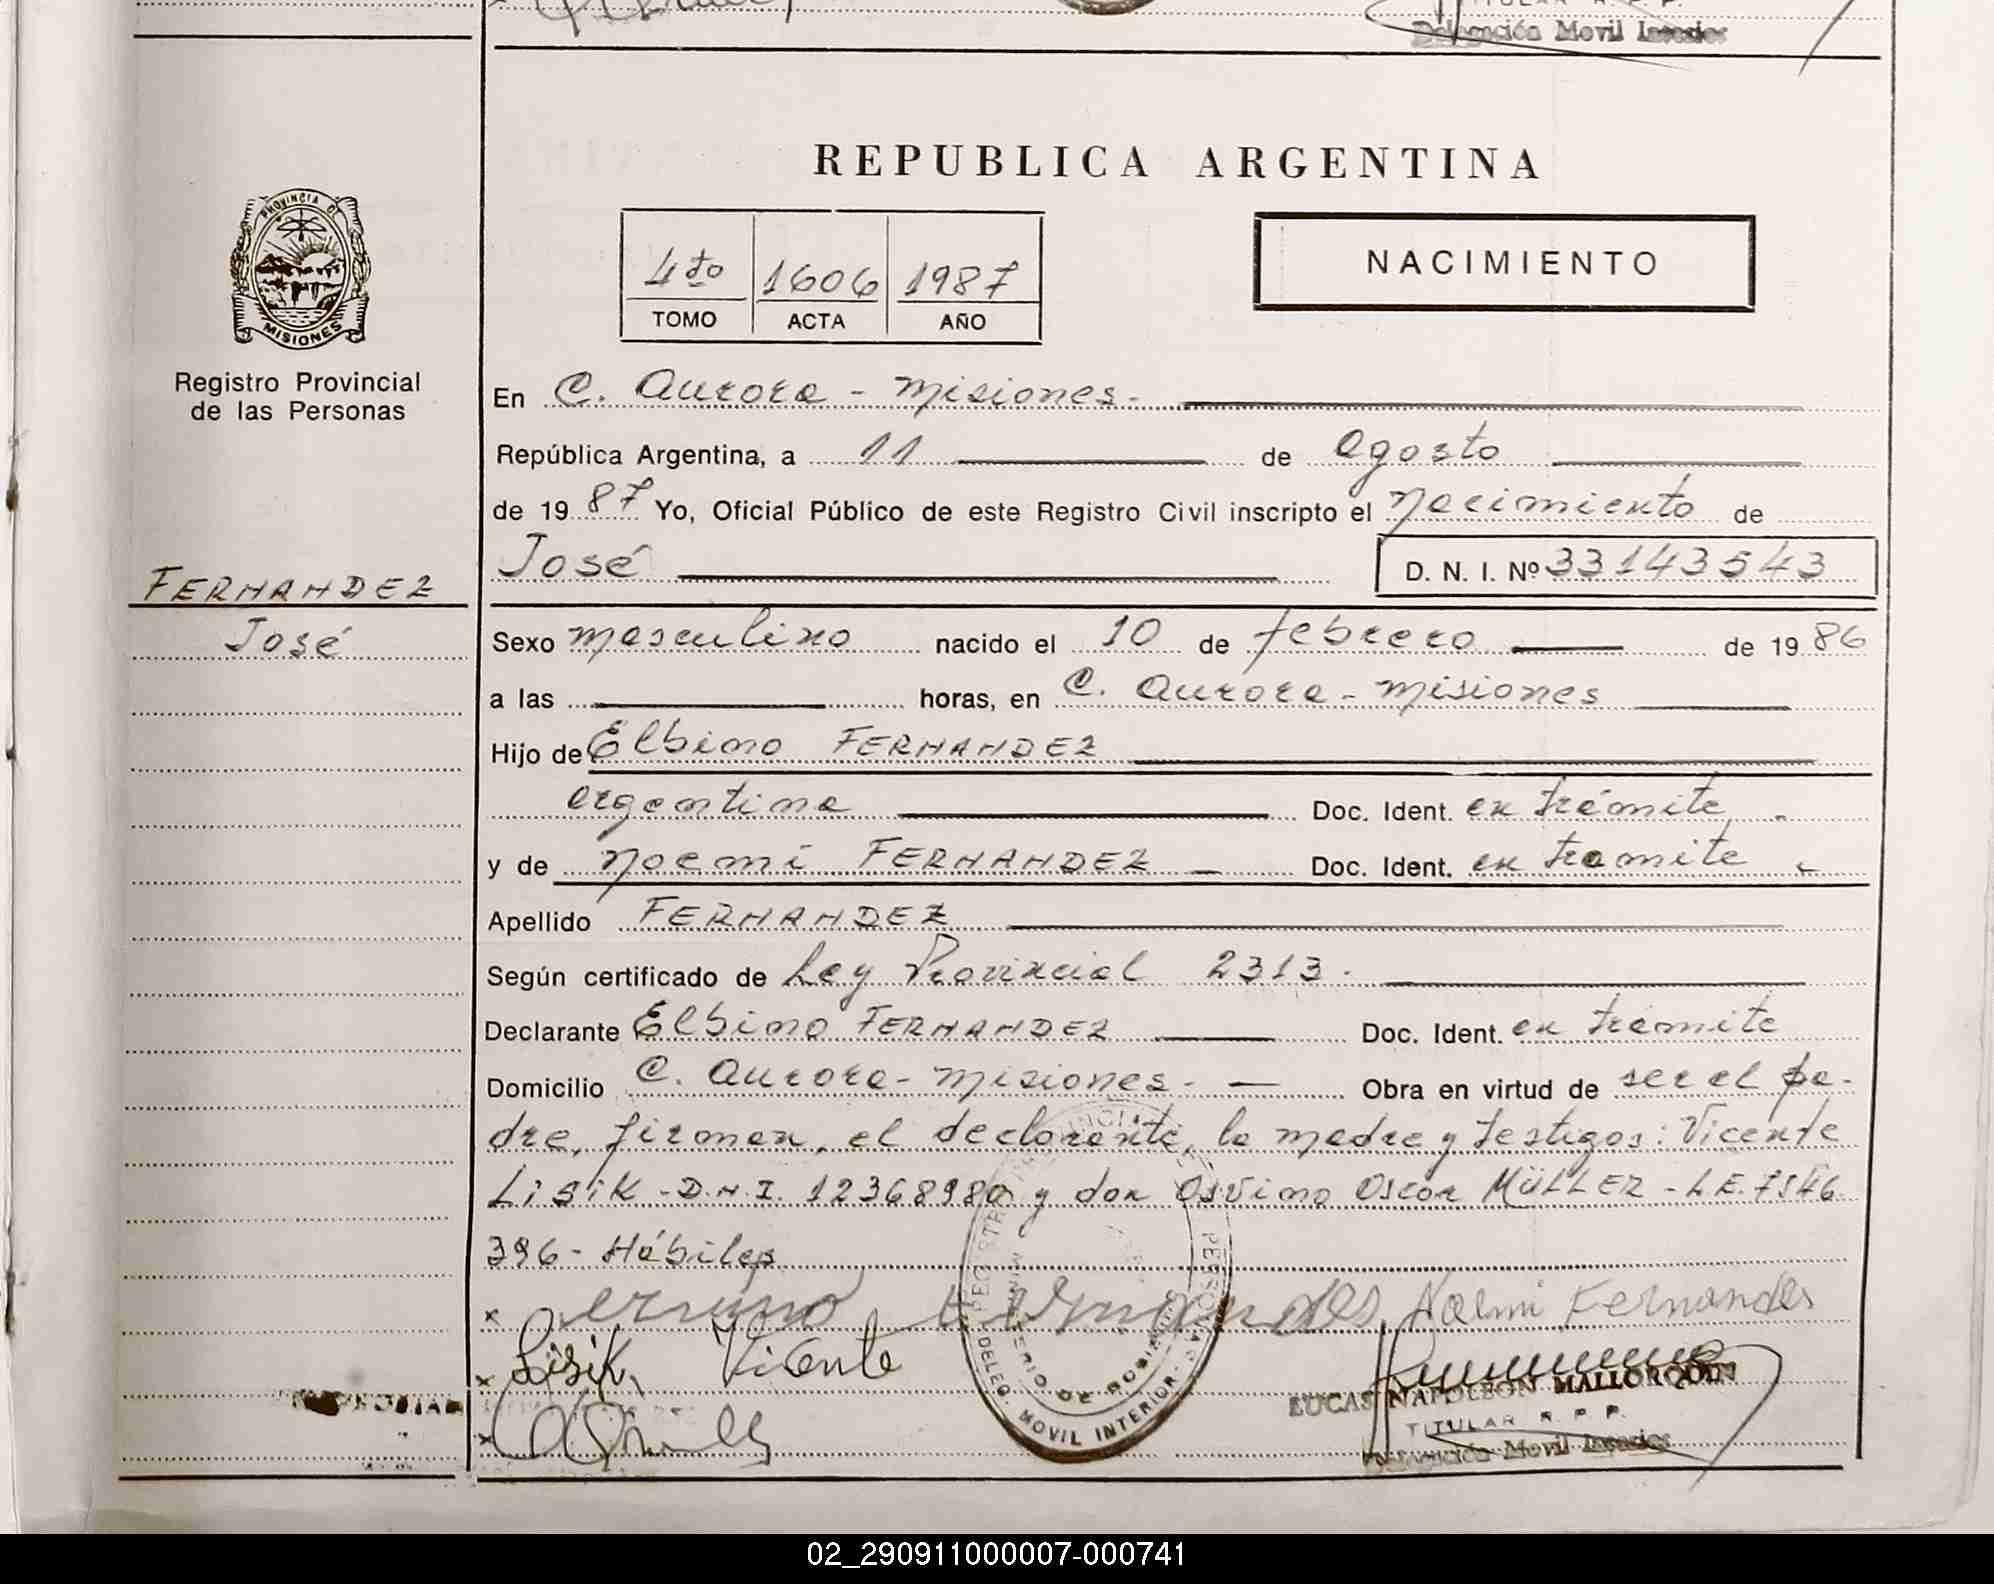 Delegación Movil Interior
REPUBLICA ARGENTINA
PROVINCIA DE
MISIONES
Registro Provincial
de las Personas
4to 1606 1987
TOMO ACTA AÑO
NACIMIENTO
En C. Aurora - Misiones.
República Argentina, a 11 de agosto
de 1987 Yo, Oficial Público de este Registro Civil inscripto el Nacimiento de
José D. N. I. Nº 33143543
FERNANDEZ
José
Sexo masculino nacido el 10 de febrero de 1986
a las horas, en C. Aurora - Misiones
Hijo de Elbino FERNANDEZ
argentina Doc. Ident. en trámite
y de Noemi FERNANDEZ Doc. Ident. en tramite
Apellido FERNANDEZ
Según certificado de Ley Provincial 2313.
Declarante Elbino FERNANDEZ Doc. Ident. en trámite
Domicilio C. Aurora - Misiones. Obra en virtud de ser el pa-
dre, firman, el declarante, la madre y testigos: Vicente
Lisik - D.N.I. 12368980 y don Osvino Oscar MÜLLER - L.E. 7546
396 - Hábiles
Fernandes Noemi Fernandes
Lisik Vicente
LUCAS NAPOLEON MALLORQUIN
TITULAR R. P. P.
Delegación Movil Interior
DELEG. MOVIL INTERIOR
MINISTERIO DE GOBIERNO
02_290911000007-000741